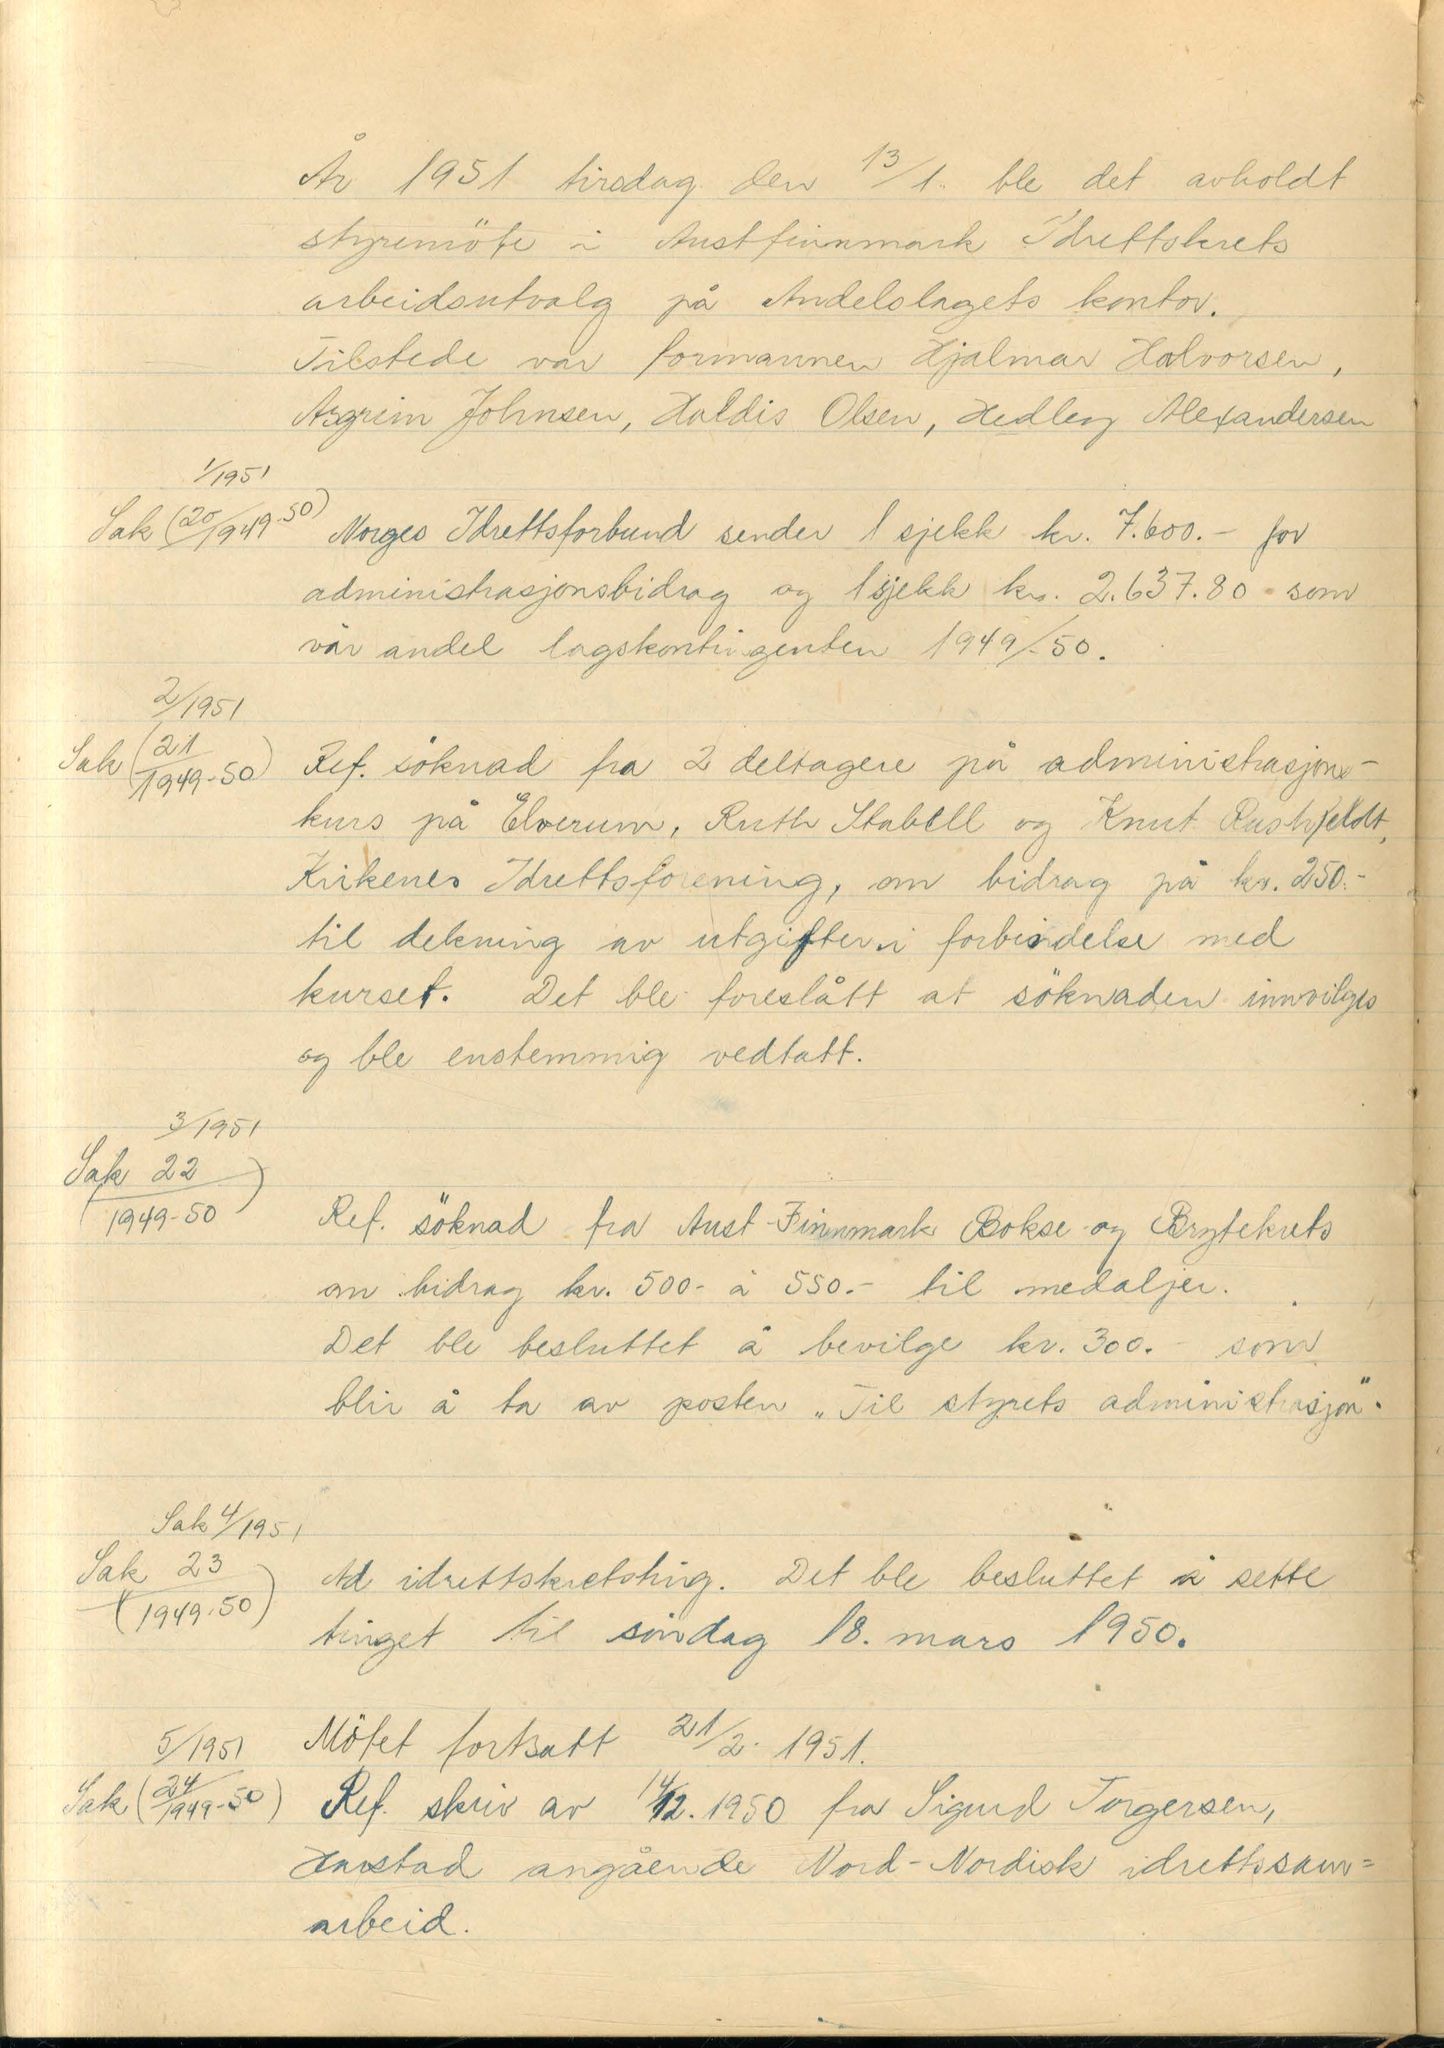 År 1951 tirsdag den 13/1. ble det avholdt
styremöte i Austfinnmark Idrettskrets
arbeidsutvalg på Andelslagets kontor.
Tilstede var formannen Hjalmar Halvorsen,
Asgrim Johnsen, Haldis Olsen, Hedley Alexandersen
1/1951
Sak (20/1949-50) Norges Idrettsforbund sender 1 sjekk kr. 7.600.- for
administrasjonsbidrag og 1 sjekk kr. 2.637.80 som
vår andel lagskontingenten 1949/-50.
2/1951
Sak (21/1949-50) Ref. söknad fra 2 deltagere på administrasjons-
kurs på Elverum, Ruth Stabell og Knut Rushfeldt,
Kirkenes Idrettsforening, om bidrag på kr. 250.-
til dekning av utgifter i forbindelse med
kurset. Det ble foreslått at söknaden innvilges
og ble enstemmig vedtatt.
3/1951
Sak (22/1949-50)
Ref. söknad fra Aust-Finnmark Bokse- og Brytekrets
om bidrag kr. 500- à 550.- til medaljer.
Det ble besluttet å bevilge kr. 300.- som
blir å ta av posten „Til styrets administrasjon".
Sak 4/1951
Sak (23/1949-50) Ad idrettskretsting. Det ble besluttet å sette
tinget til söndag 18. mars 1950.
5/1951 Mötet fortsatt 21/2. 1951.
Sak (24/1949-50) Ref. skriv av 14/12. 1950 fra Sigurd Torgersen,
Harstad angående Nord-Nordisk idrettssam=
arbeid.